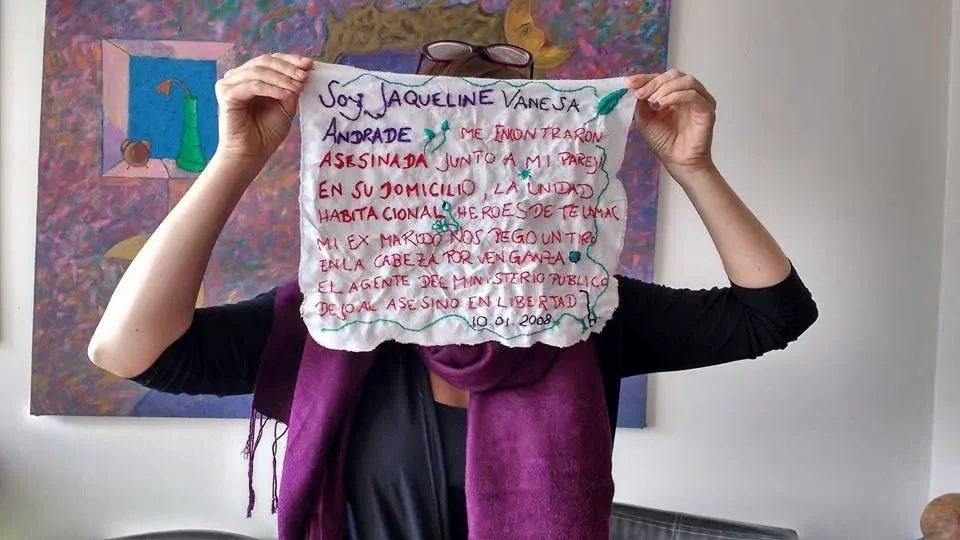 Soy JAQUELINE VANESA
ANDRADE ME ENCONTRARON
ASESINADA JUNTO A MI PAREJ
EN SU DOMICILIO, LA UNIDAD
HABITACIONAL HEROES DE TECAMAC
MI EX MARIDO NOS PEGO UN TIRO
EN LA CABEZA POR VENGANZA
EL AGENTE DEL MINISTERIO PUBLICO
DEJO AL ASESINO EN LIBERTAD
10.01.2008